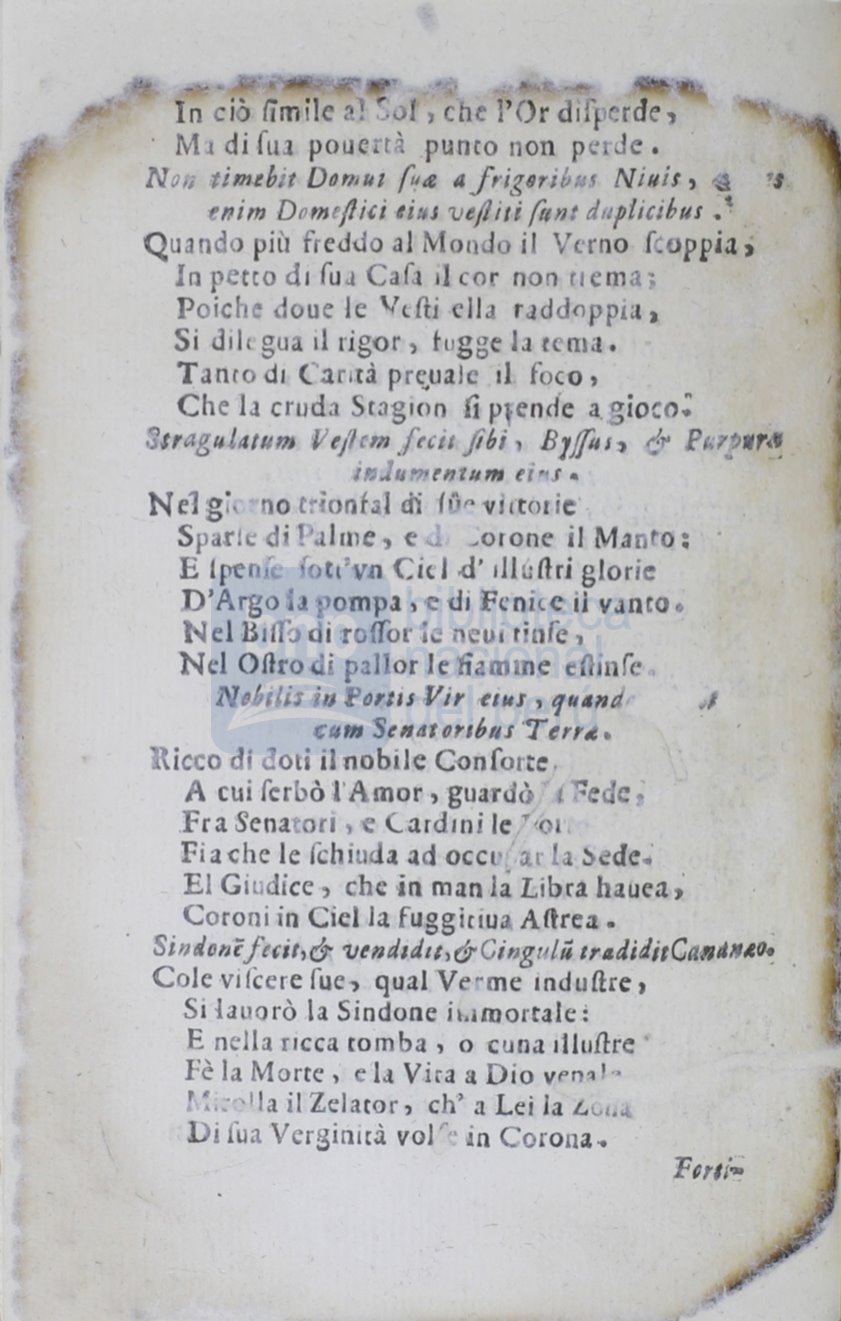 In ciò ſimile al Sol, che l'Or diſperde,
Ma di ſua pouertà punto non perde.
Non timebit Domui ſuæ a frigoribus Niuis,
enim Domeſtici eius veſtiti ſunt duplicibus.
Quando più freddo al Mondo il Verno ſcoppia,
In petto di ſua Caſa il cor non trema;
Poiche doue le Veſti ella raddoppia,
Si dilegua il rigor, fugge la tema.
Tanto di Carità preuale il foco,
Che la cruda Stagion ſi prende a gioco.
Stragulatum Veſtem fecit ſibi, Byſſus, & Purpura
indumentum eius.
Nel giorno trionfal di ſûe vittorie
Sparſe di Palme, e di Corone il Manto:
E ſpenſe ſott'vn Ciel d' illuſtri glorie
D'Argo la pompa, e di Fenice il vanto.
Nel Biſſo di roſſor le neui tinſe,
Nel Oſtro di pallor le fiamme eſtinſe
Nobilis in Portis Vir eius, quand
cum Senatoribus Terræ.
Ricco di doti il nobile Conſorte
A cui ſerbò l'Amor, guardò Fede,
Fra Senatori, e Cardini le
Fia che le ſchiuda ad occupar la Sede.
El Giudice, che in man la Libra hauea,
Coroni in Ciel la fuggitiua Aſtrea.
Sindonē fecit, & vendidit, & Cingulū tradidit Cananæo.
Cole viſcere ſue, qual Verme induſtre,
Si lauorò la Sindone immortale:
E nella ricca tomba, o cuna illuſtre
Fè la Morte, e la Vita a Dio venale
la il Zelator, ch' a Lei la Zona
Di ſua Verginità volſe in Corona.
Forti-
biblioteca
nacional
del perú